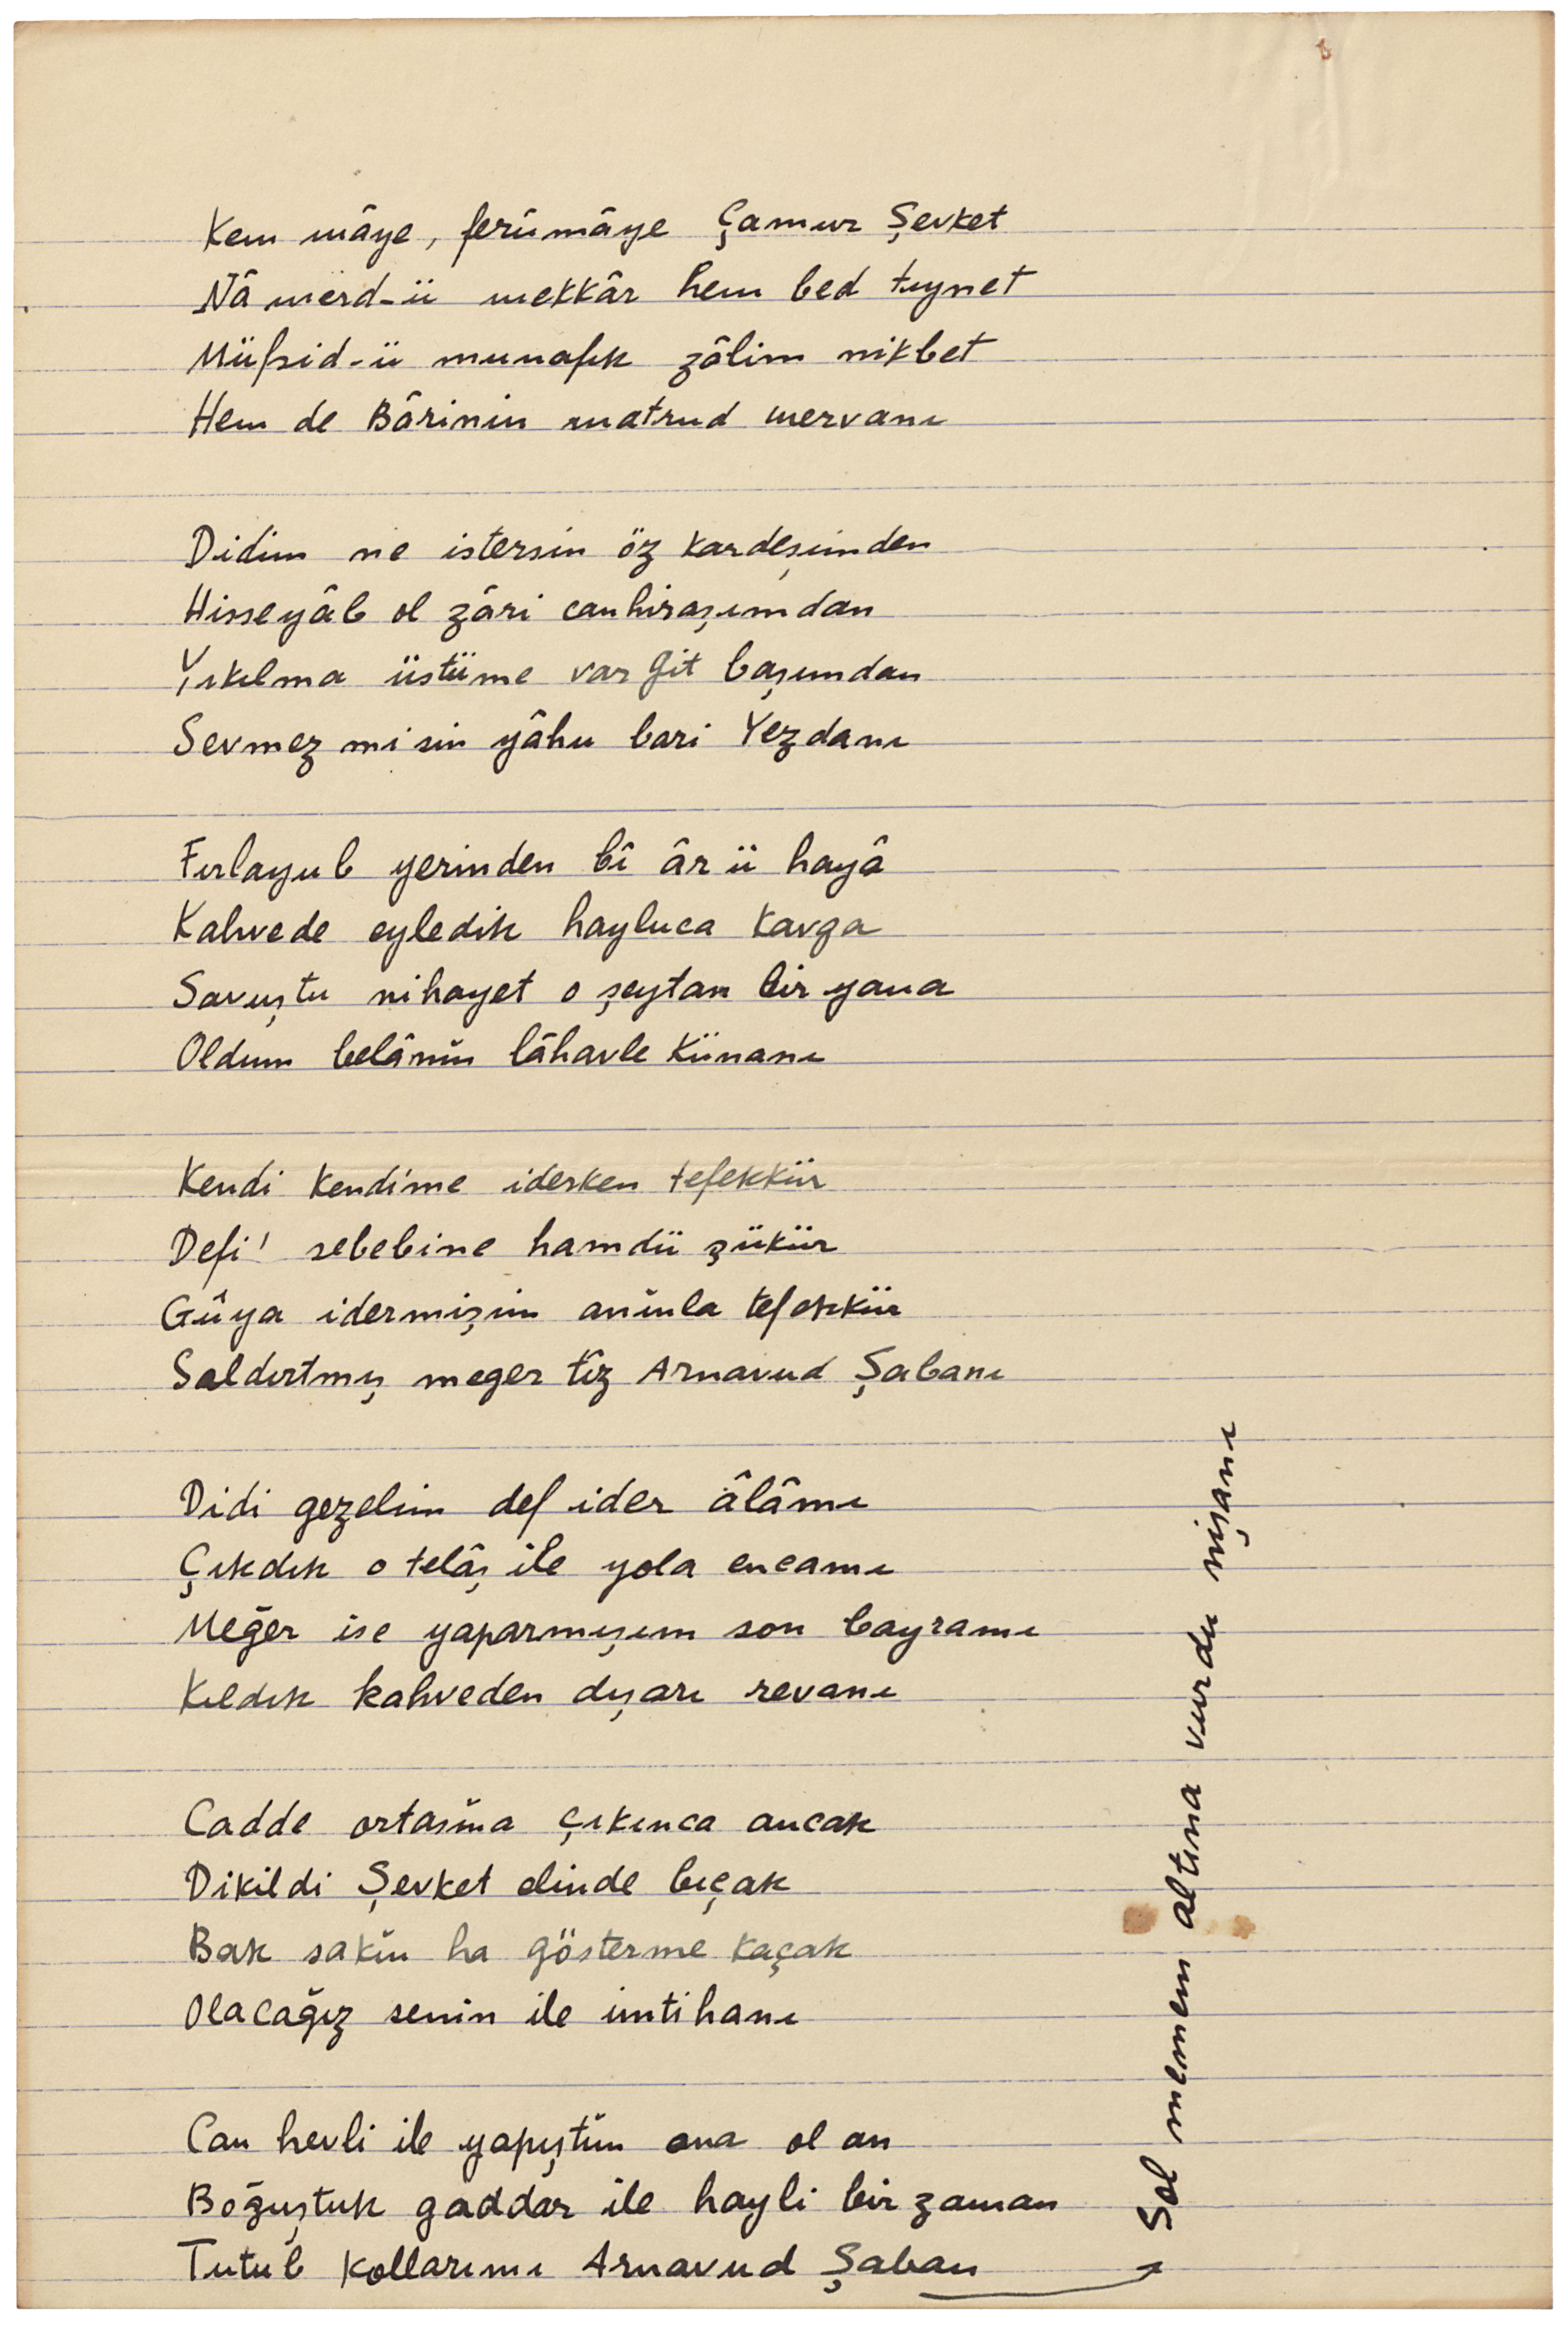 Kem mâye, ferümâye Çamur Şevket
Nâ merd-ü mekkâr hem bed tıynet
Müfsid-ü munafık zâlim nikbet
Hem de Bârinin matrud mervanı
Didim ne istersin öz kardeşimden
Hisseyâb ol zâri canhıraşımdan
Yıkılma üstüme var git başımdan
Sevmez misin yâhu bari Yezdanı
Fırlayub yerinden bî âr ü hayâ
Kahvede eyledik hayluca kavga
Savuştu nihayet o şeytan bir yana
Oldum belânın lâhavle künanı
Kendi kendime iderken tefekkür
Defi' sebebine hamdü şükür
Gûya idermişim anınla tefekkür
Saldırtmış meger tîz Arnavud Şabanı
Didi gezelim def ider âlâmı
Çıkdık o telâş ile yola encamı
Meğer ise yaparmışım son bayramı
Kıldık kahveden dışarı revanı
Cadde ortasına çıkınca ancak
Dikildi Şevket elinde bıçak
Bak sakın ha gösterme kaçak
Olacağız senin ile imtihanı
Can hevli ile yapıştım ona ol an
Boğuştuk gaddar ile hayli bir zaman
Tutub kollarımı Arnavud Şaban
Sol memem altına vurdu nişanı